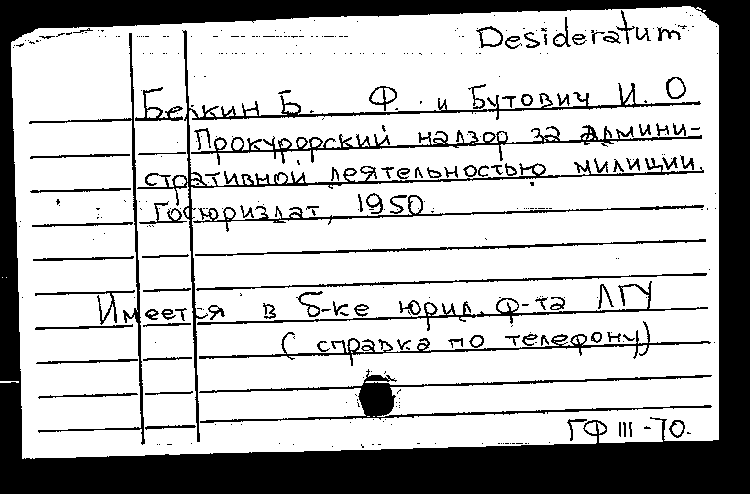 Desideratum
Белкин Б. Ф. и Бутович И. О
Прокурорский надзор за админи-
стративной деятельностью милиции.
Госюриздат, 1950.
Имеется в б-ке юрид. ф-та ЛГУ
(справка по телефону)
ГФ III-70.